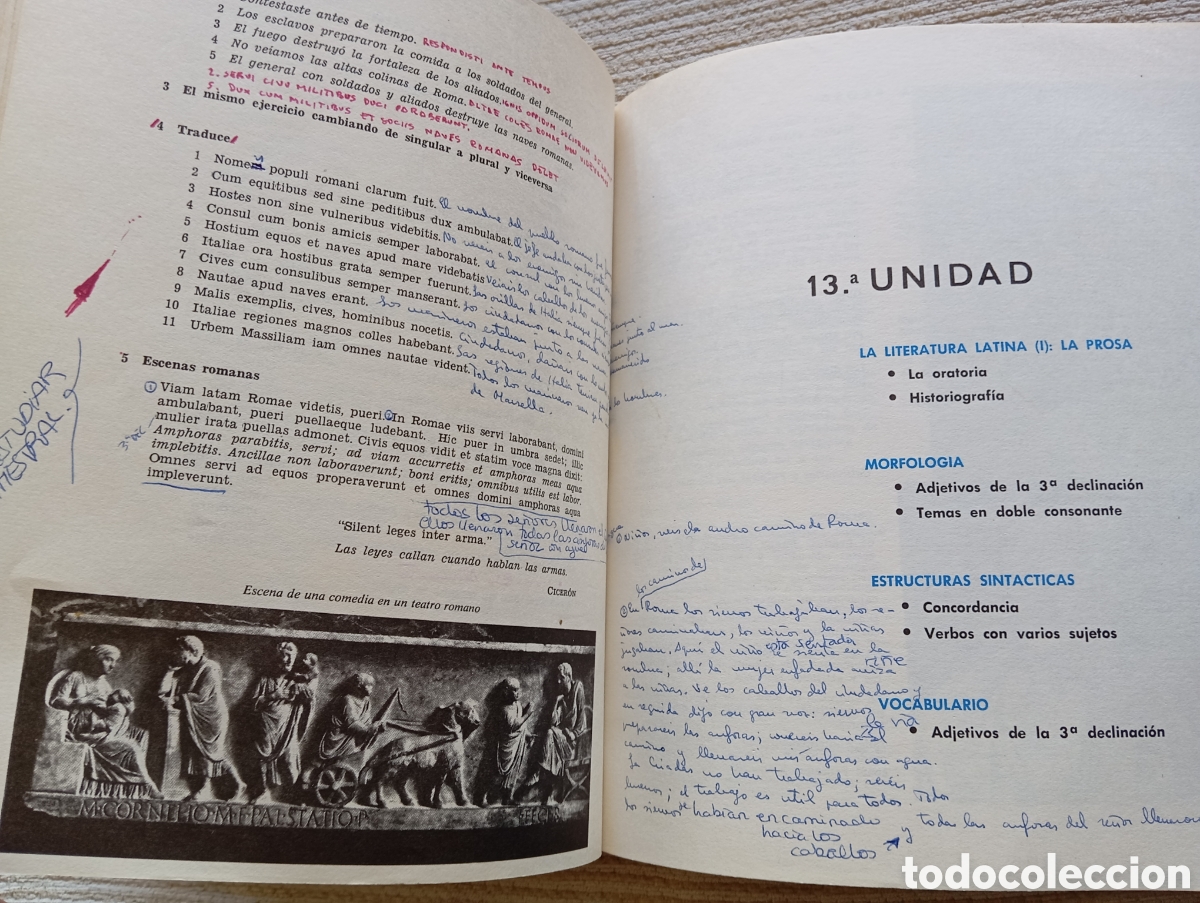 Contestaste antes de tiempo. RESPONDISTI ANTE TEMPUS
2 Los esclavos prepararon la comida a los soldados del general.
3 El fuego destruyó la fortaleza de los aliados. IGNIS OPPIDUM SOCIORUM
4 No veíamos las altas colinas de Roma. ALTOS COLLES ROMAE NON
5 El general con soldados y aliados destruye las naves romanas.
2. SERVI CIVU MILITIBUS DUCI PARABERUNT.
5. DUX CUM MILITIBUS ET SOCIIS NAVES ROMANAS DELET
3 El mismo ejercicio cambiando de singular a plural y viceversa
4 Traduce
1 Nomen populi romani clarum fuit. El nombre del pueblo romano fue
2 Cum equitibus sed sine peditibus dux ambulabat. El jefe andaba con
3 Hostes non sine vulneribus videbitis. No vereis a los enemigos sin
4 Consul cum bonis amicis semper laborabat. el consul con los buenos
5 Hostium equos et naves apud mare videbatis Veiais los caballos de los
6 Italiae ora hostibus grata semper fuerunt. Las orillas de Italia siempre
7 Cives cum consulibus semper manserant. Los ciudadanos con los
8 Nautae apud naves erant. Los marineros estaban junto a las naves
9 Malis exemplis, cives, hominibus nocetis. Ciudadanos, dañais con los
10 Italiae regiones magnos colles habebant. Las regiones de Italia
11 Urbem Massiliam iam omnes nautae vident. Todos los marineros ven ya
de Marsella.
5 Escenas romanas
① Viam latam Romae videtis, pueri. ② In Romae viis servi laborabant, domini
ambulabant, pueri puellaeque ludebant. Hic puer in umbra sedet; illic
mulier irata puellas admonet. Civis equos vidit et statim voce magna dixit:
Amphoras parabitis, servi; ad viam accurretis et amphoras meas aqua
implebitis. Ancillae non laboraverunt; boni eritis; omnibus utilis est labor.
Omnes servi ad equos properaverunt et omnes domini amphoras aqua
impleverunt.
ESTUDIAR
todos los señores llenaron
ellos llenaron todas las anforas
señor con agua
"Silent leges inter arma."
Las leyes callan cuando hablan las armas.
CICERÓN
Escena de una comedia en un teatro romano
M·CORNELIO·M·F·PAL·STATIO·P
FECER
13.ª UNIDAD
LA LITERATURA LATINA (I): LA PROSA
• La oratoria
• Historiografía
MORFOLOGIA
• Adjetivos de la 3ª declinación
• Temas en doble consonante
ESTRUCTURAS SINTACTICAS
• Concordancia
• Verbos con varios sujetos
VOCABULARIO
• Adjetivos de la 3ª declinación
① niños, veis el ancho camino de Roma.
los caminos de
② En Roma los siervos trabajaban, los se-
ñores caminaban, los niños y la niñas
jugaban. Aqui el niño se sienta en la
está sentado
sombra; allí la mujer enfadada avisa
riñe
a las niñas. Ve los caballos del ciudadano y
en seguida dijo con gran voz: siervos
preparareis las anforas; correreis hacia el
la via
camino y llenareis mis ánforas con agua.
La Criadas no han trabajado; sereis
buenos; el trabajo es util para todos. Todos
los siervos se habian encaminado
hacia los
caballos
y todas las anforas del señor llenaron
todocoleccion.net